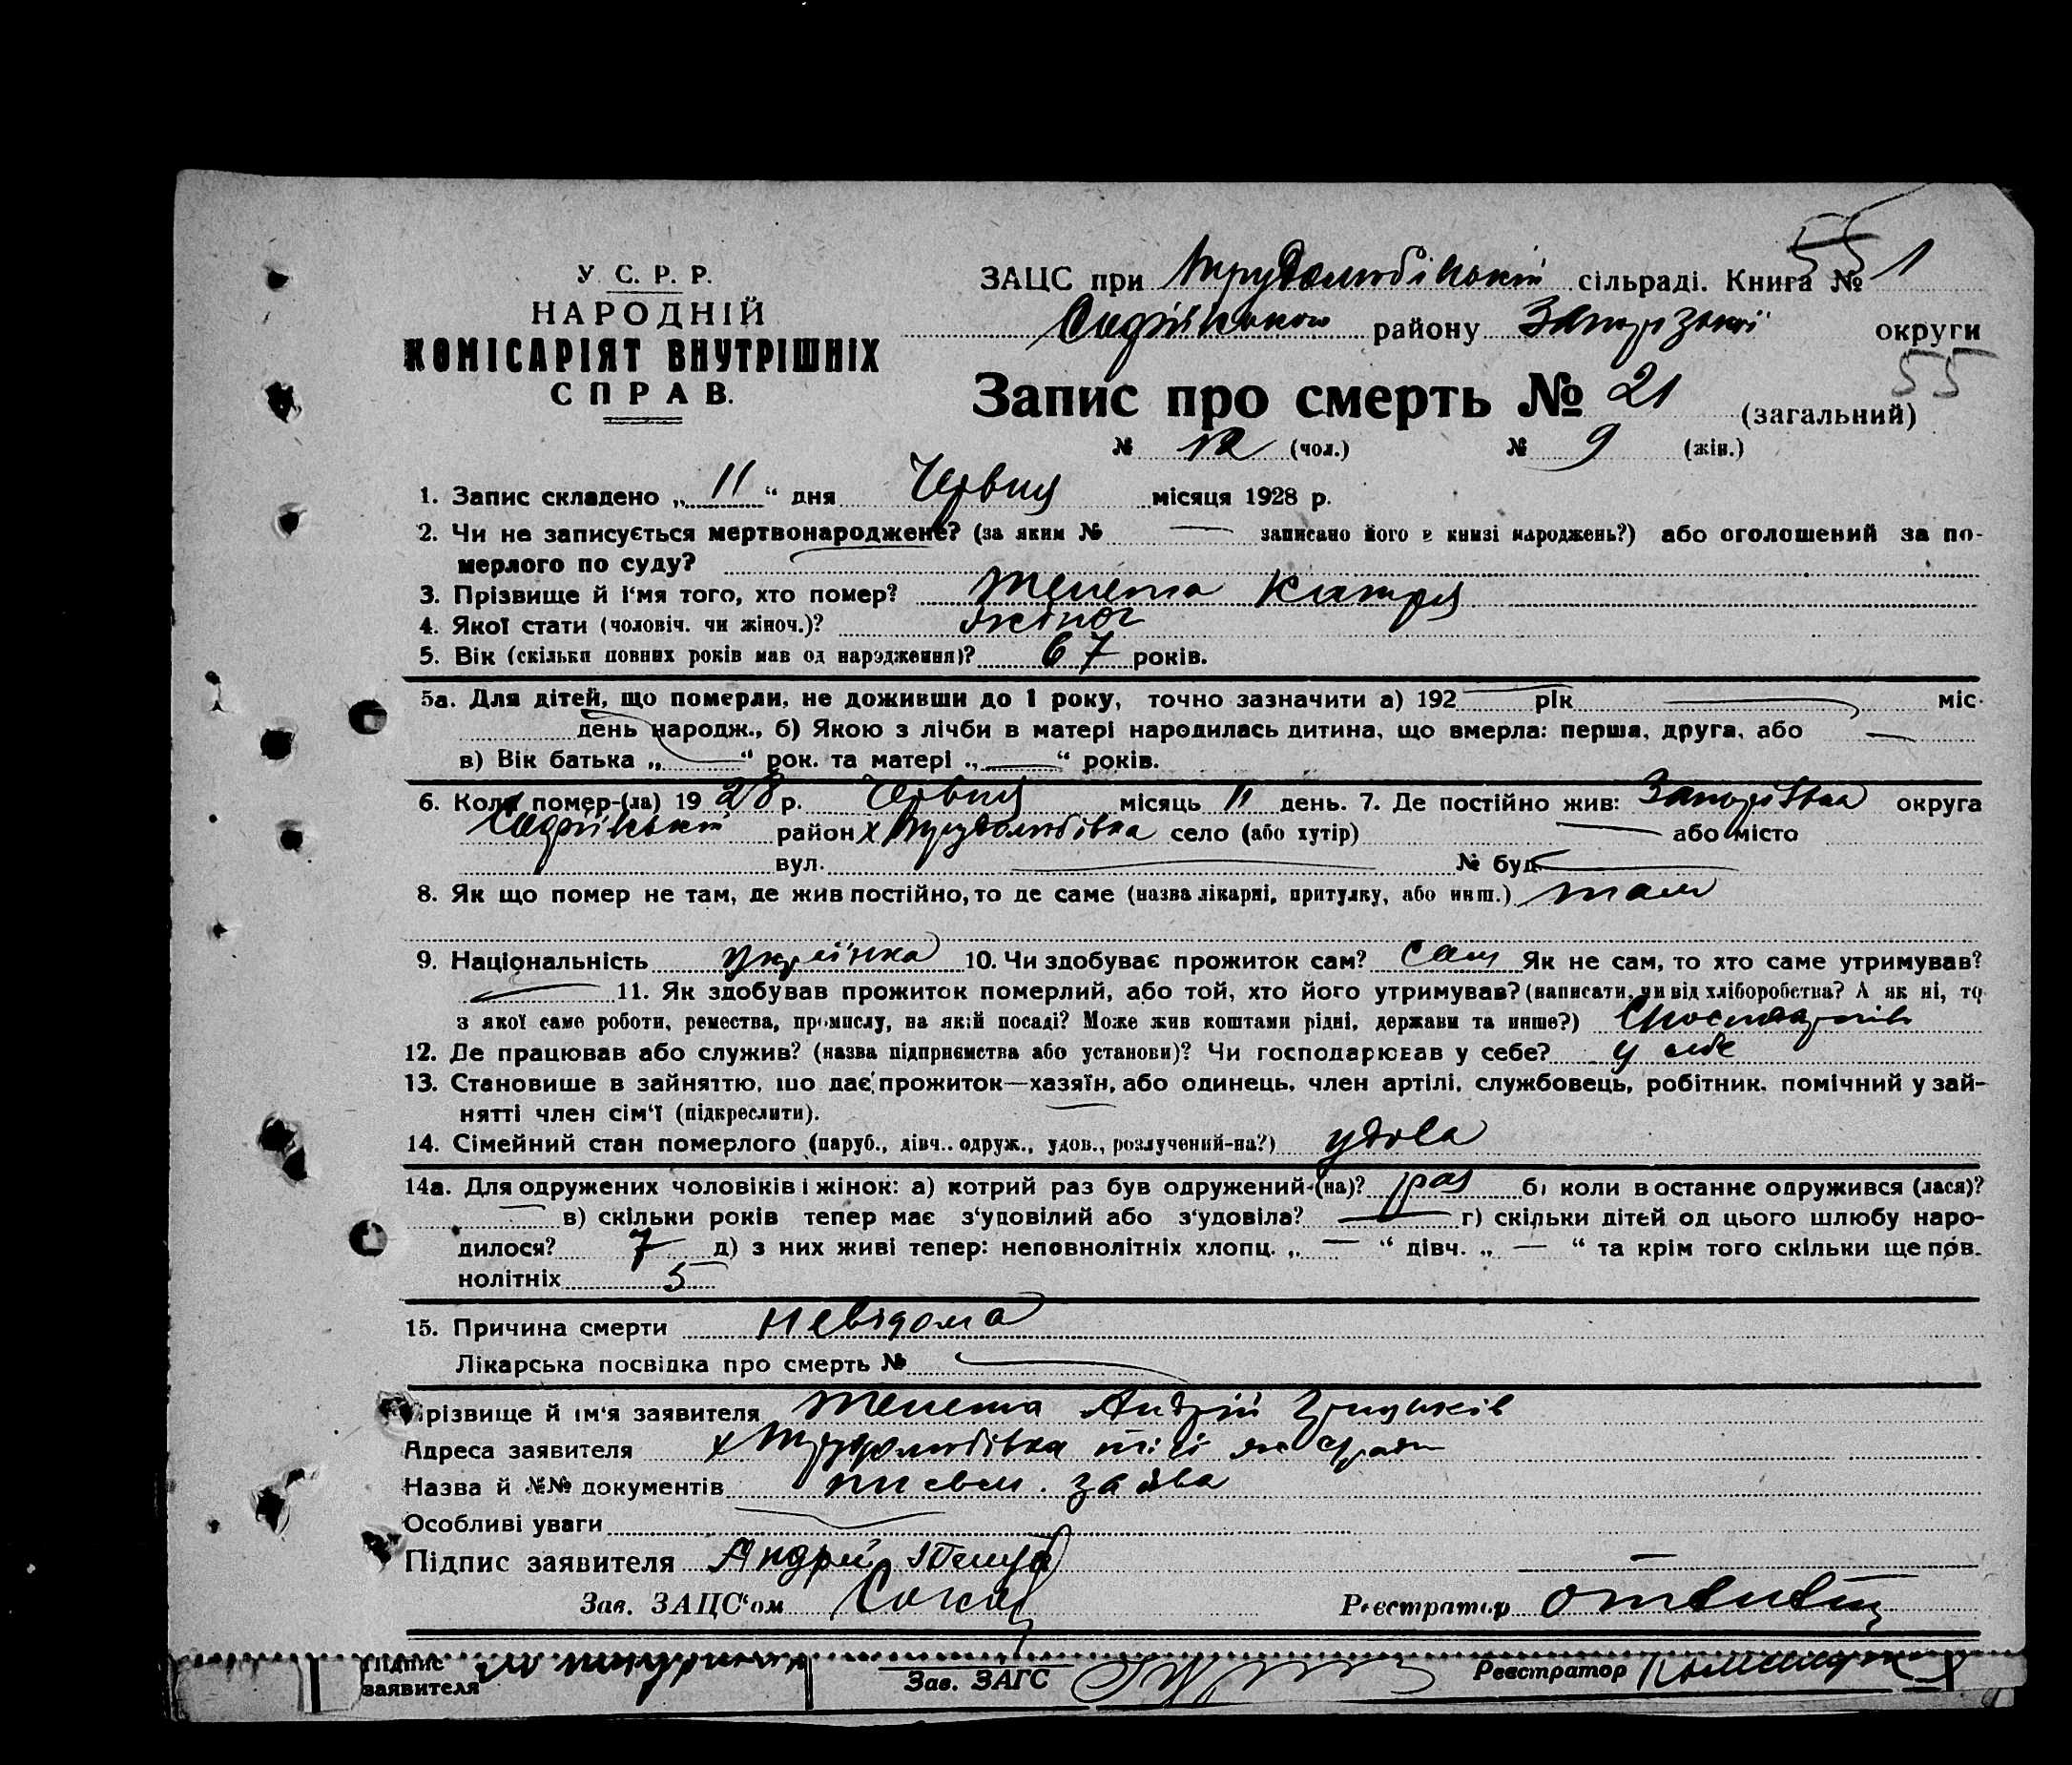 У. С. Р. Р.
НАРОДНІЙ
КОМІСАРІЯТ ВНУТРІШНІХ
СПРАВ.
55
ЗАЦС при Трудолюбівській сільраді. Книга № 1
Софіївського району Запорізької округи
55
Запис про смерть № 21 (загальний)
№ 12 (чол.) № 9 (жін.)
1. Запис складено „ 11 “ дня Червня місяця 1928 р.
2. Чи не записується мертвонароджене? (за яким № — записано його в книзі народжень?) або оголошений за по-
мерлого по суду?
3. Прізвище й і'мя того, хто помер? Тенета Катря
4. Якої стати (чоловіч. чи жіноч.)? жіноч
5. Вік (скільки повних років мав од народження)? 67 років.
5а. Для дітей, що померли, не доживши до 1 року, точно зазначити а) 192 — рік — міс.
день народж., б) Якою з лічби в матері народилась дитина, що вмерла: перша, друга, або —
в) Вік батька „ — “ рок. та матері „ — “ років.
6. Коли помер-(ла) 19 28 р. Червня місяць 11 день. 7. Де постійно жив: Запорізька округа
Софіївський район х Трудолюбівка село (або хутір) — або місто
вул. — № буд. —
8. Як що помер не там, де жив постійно, то де саме (назва лікарні, притулку, або инш.) там
9. Національність українка 10. Чи здобуває прожиток сам? сам Як не сам, то хто саме утримував?
— 11. Як здобував прожиток померлий, або той, хто його утримував? (написати, чи від хліборобства? А як ні, то
з якої саме роботи, ремества, промислу, на якій посаді? Може жив коштами рідні, держави та инше?)
12. Де працював або служив? (назва підприємства або установи)? Чи господарював у себе? у себе
13. Становище в зайняттю, що дає прожиток—хазяїн, або одинець, член артілі, службовець, робітник, помічний у зай-
нятті член сім'ї (підкреслити).
14. Сімейний стан померлого (паруб., дівч.. одруж., удов., розлучений-на?) удова
14а. Для одружених чоловіків і жінок: а) котрий раз був одружений-(на)? 1 раз б) коли востаннє одружився (лася)?
— в) скільки років тепер має з'уповілий або з'удовіла? — г) скільки дітей од цього шлюбу наро-
дилося? 7 д) з них живі тепер: неповнолітніх хлопц. „ — “ дівч. „ — “ та крім того скільки ще пов.
нолітніх 5
15. Причина смерти Невідома
Лікарська посвідка про смерть № —
Прізвище й ім'я заявителя Тенета Андрій
Адреса заявителя х Трудолюбівка
Назва й №№ документів письм. заява
Особливі уваги
Підпис заявителя Андрій Тенета
Зав. ЗАЦС'ом
Реєстратор
Підпис
заявителя
Зав. ЗАГС
Реєстратор